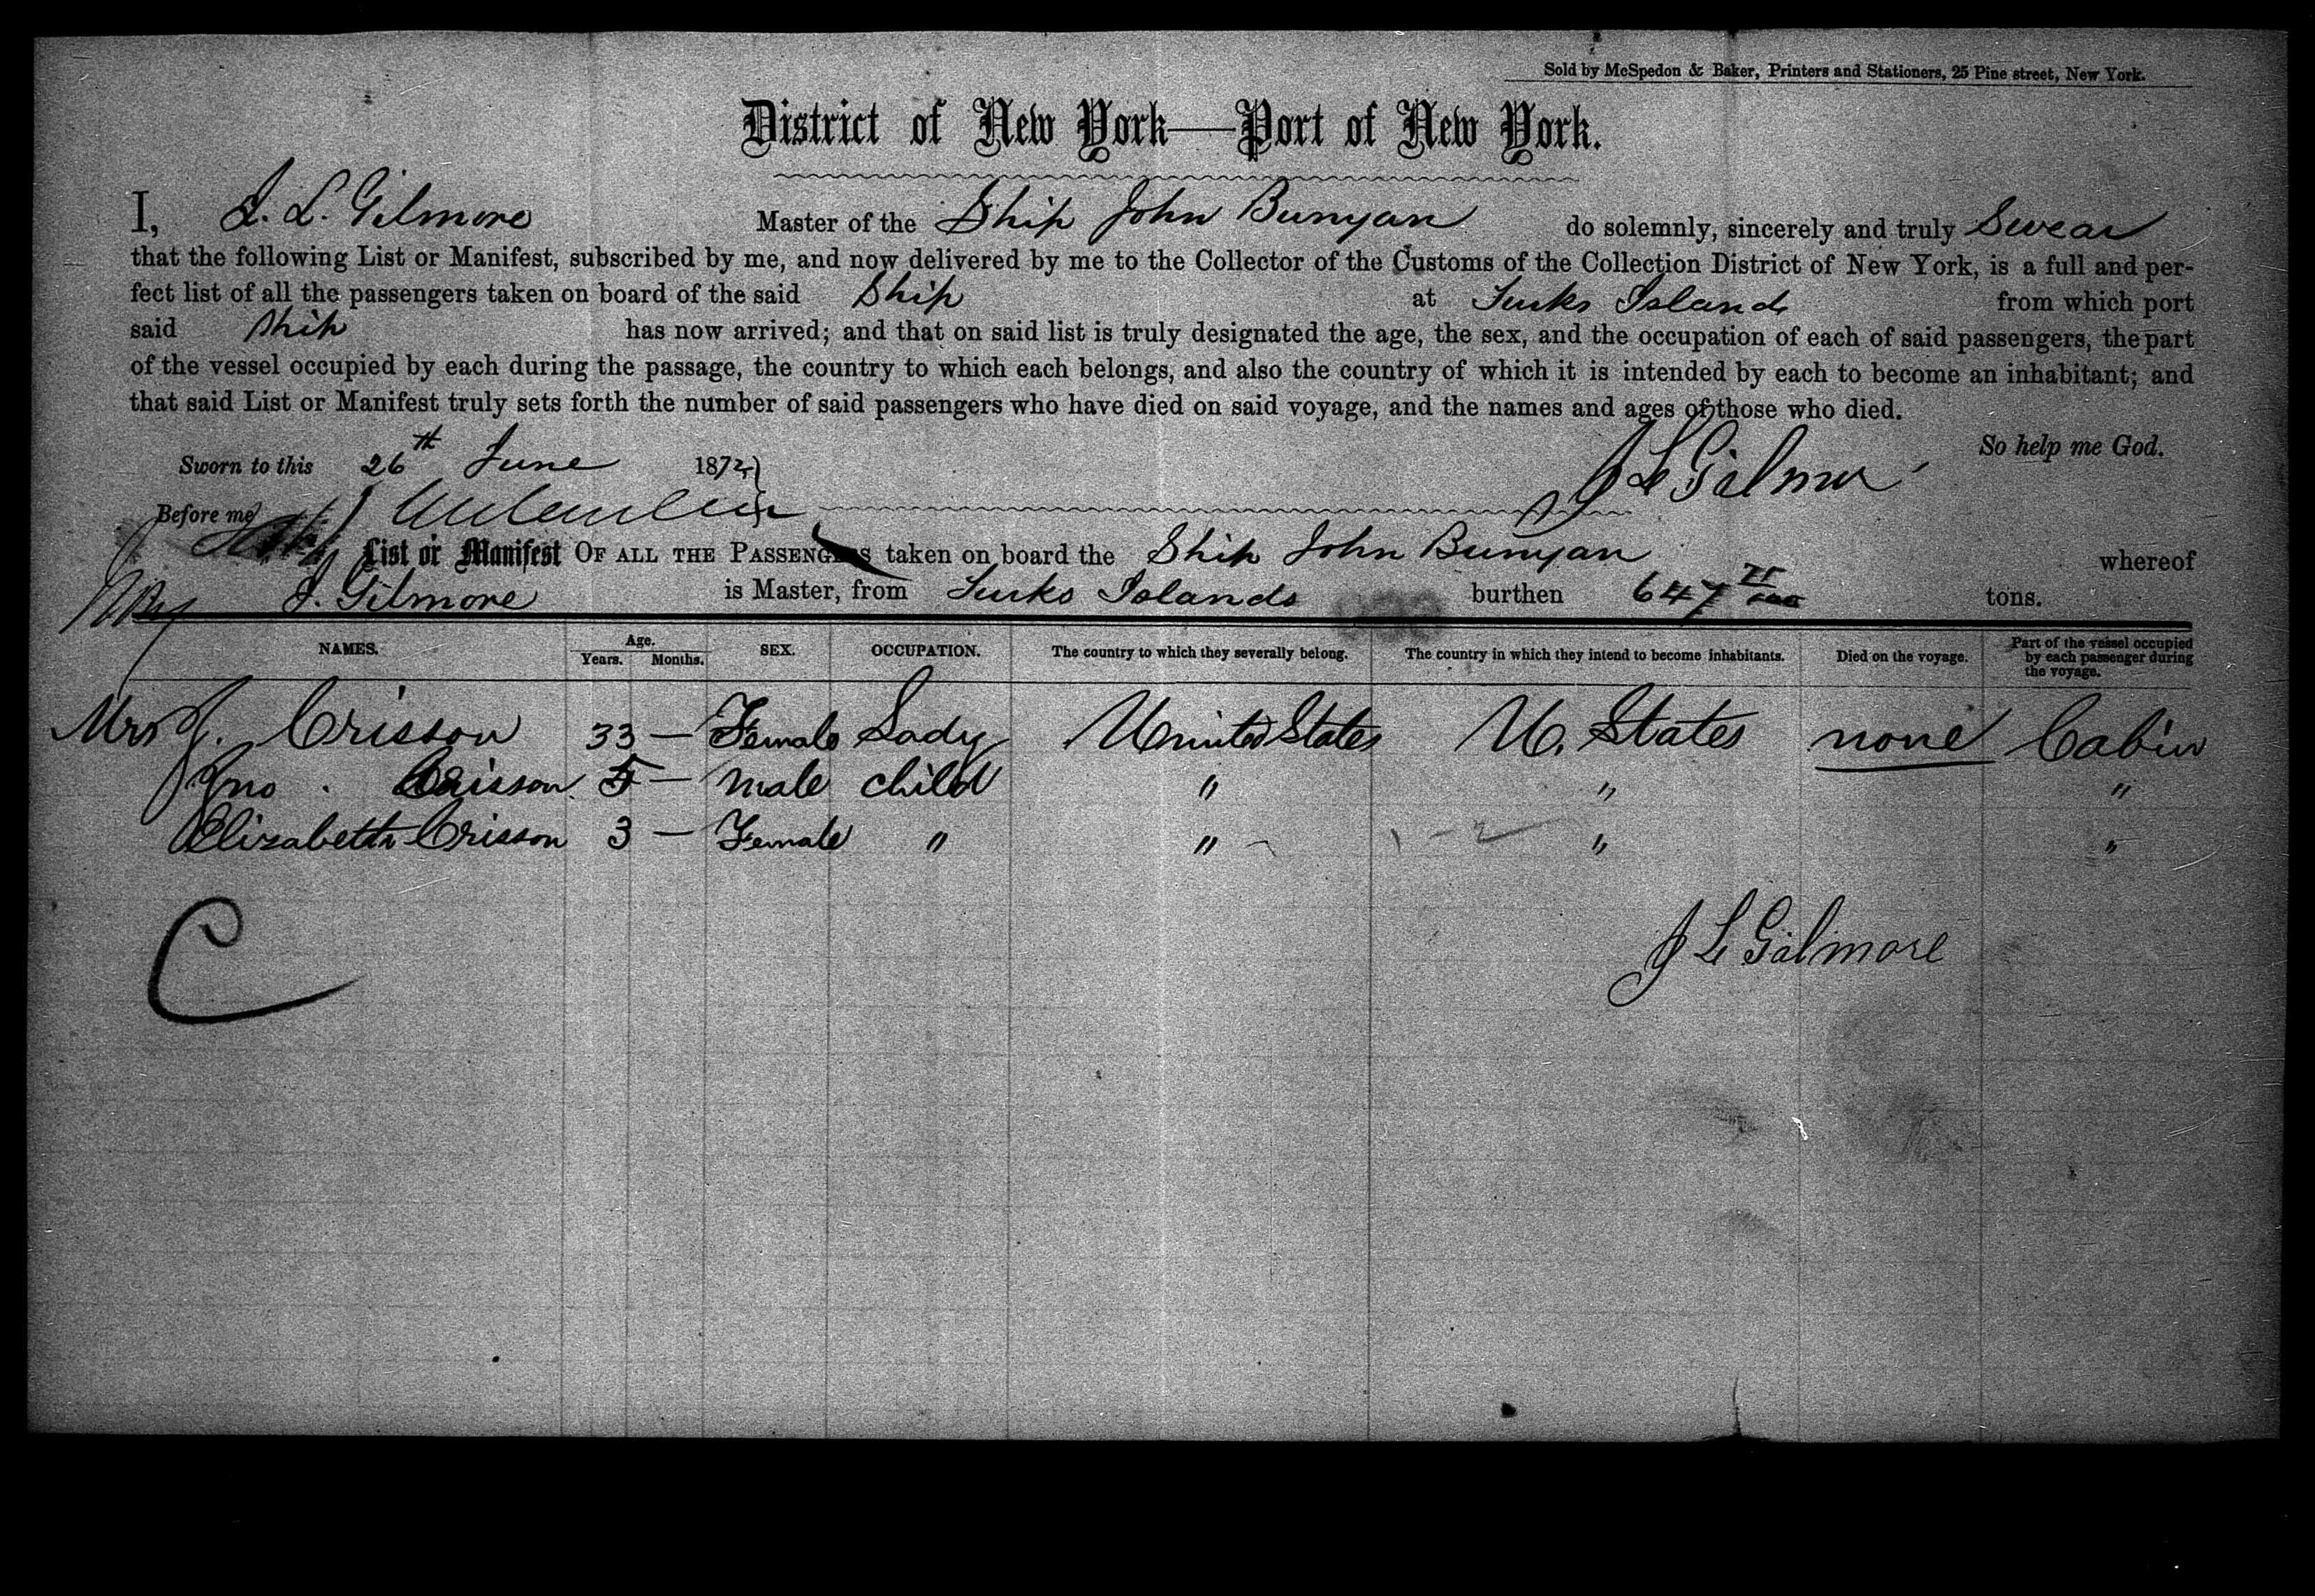 Sold by McSpedon & Baker, Printers and Stationers, 25 Pine street, New York.
District of New York—Port of New York.
I, J. L. Gilmore Master of the Ship John Bunyan do solemnly, sincerely and truly Swear
that the following List or Manifest, subscribed by me, and now delivered by me to the Collector of the Customs of the Collection District of New York, is a full and per-
fect list of all the passengers taken on board of the said Ship at Turks Islands from which port
said Ship has now arrived; and that on said list is truly designated the age, the sex, and the occupation of each of said passengers, the part
of the vessel occupied by each during the passage, the country to which each belongs, and also the country of which it is intended by each to become an inhabitant; and
that said List or Manifest truly sets forth the number of said passengers who have died on said voyage, and the names and ages of those who died.
So help me God.
Sworn to this 26th June 1872 J L Gilmore
Before me
List or Manifest OF ALL THE PASSENGERS taken on board the Ship John Bunyan whereof
J. Gilmore is Master, from Turks Islands burthen 647 tons.
NAMES. Age. Years. Months. SEX. OCCUPATION. The country to which they severally belong. The country in which they intend to become inhabitants. Died on the voyage. Part of the vessel occupied by each passenger during the voyage.
Mrs J. Crisson 33 — Female Lady United States U. States none Cabin
Jno. Crisson 5 — male child " " "
Elizabeth Crisson 3 — Female " " " "
C
J L Gilmore